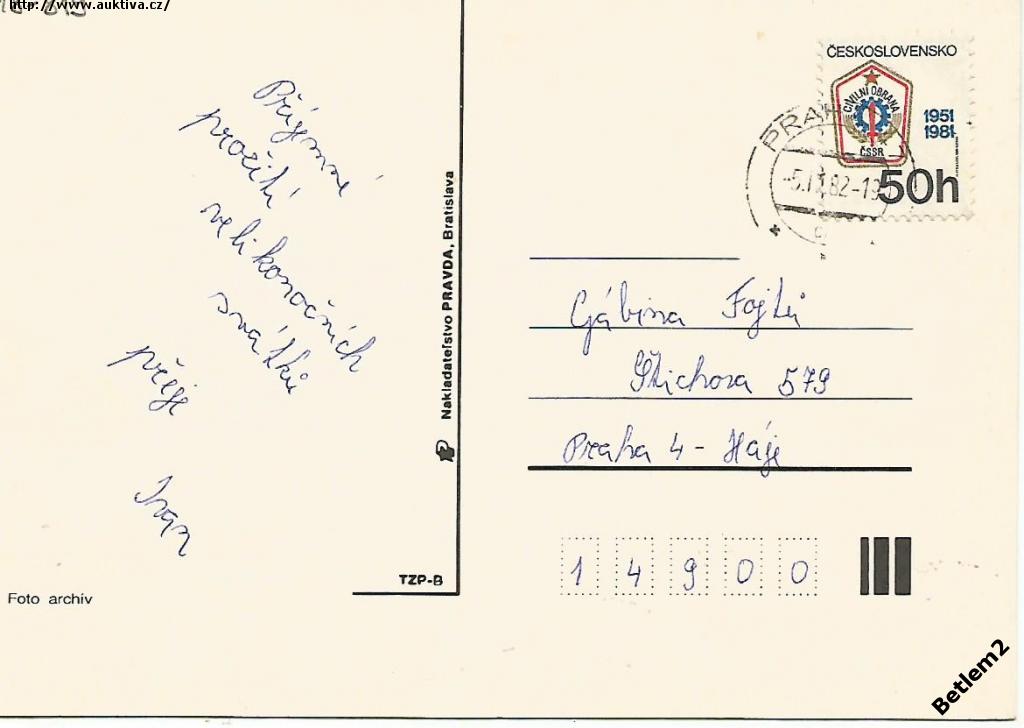 http://www.auktiva.cz/
Příjemné
prožití
velikonočních
svátků
přeje
Ivan
Foto archív
TZP-B
Nakladateľstvo PRAVDA, Bratislava
ČESKOSLOVENSKO
CIVILNÍ OBRANA
ČSSR
1951
1981
50h
PRAHA
-5.IV.82-19
Gábina Fojtů
Štichova 579
Praha 4 - Háje
1 4 9 0 0
Betlem2